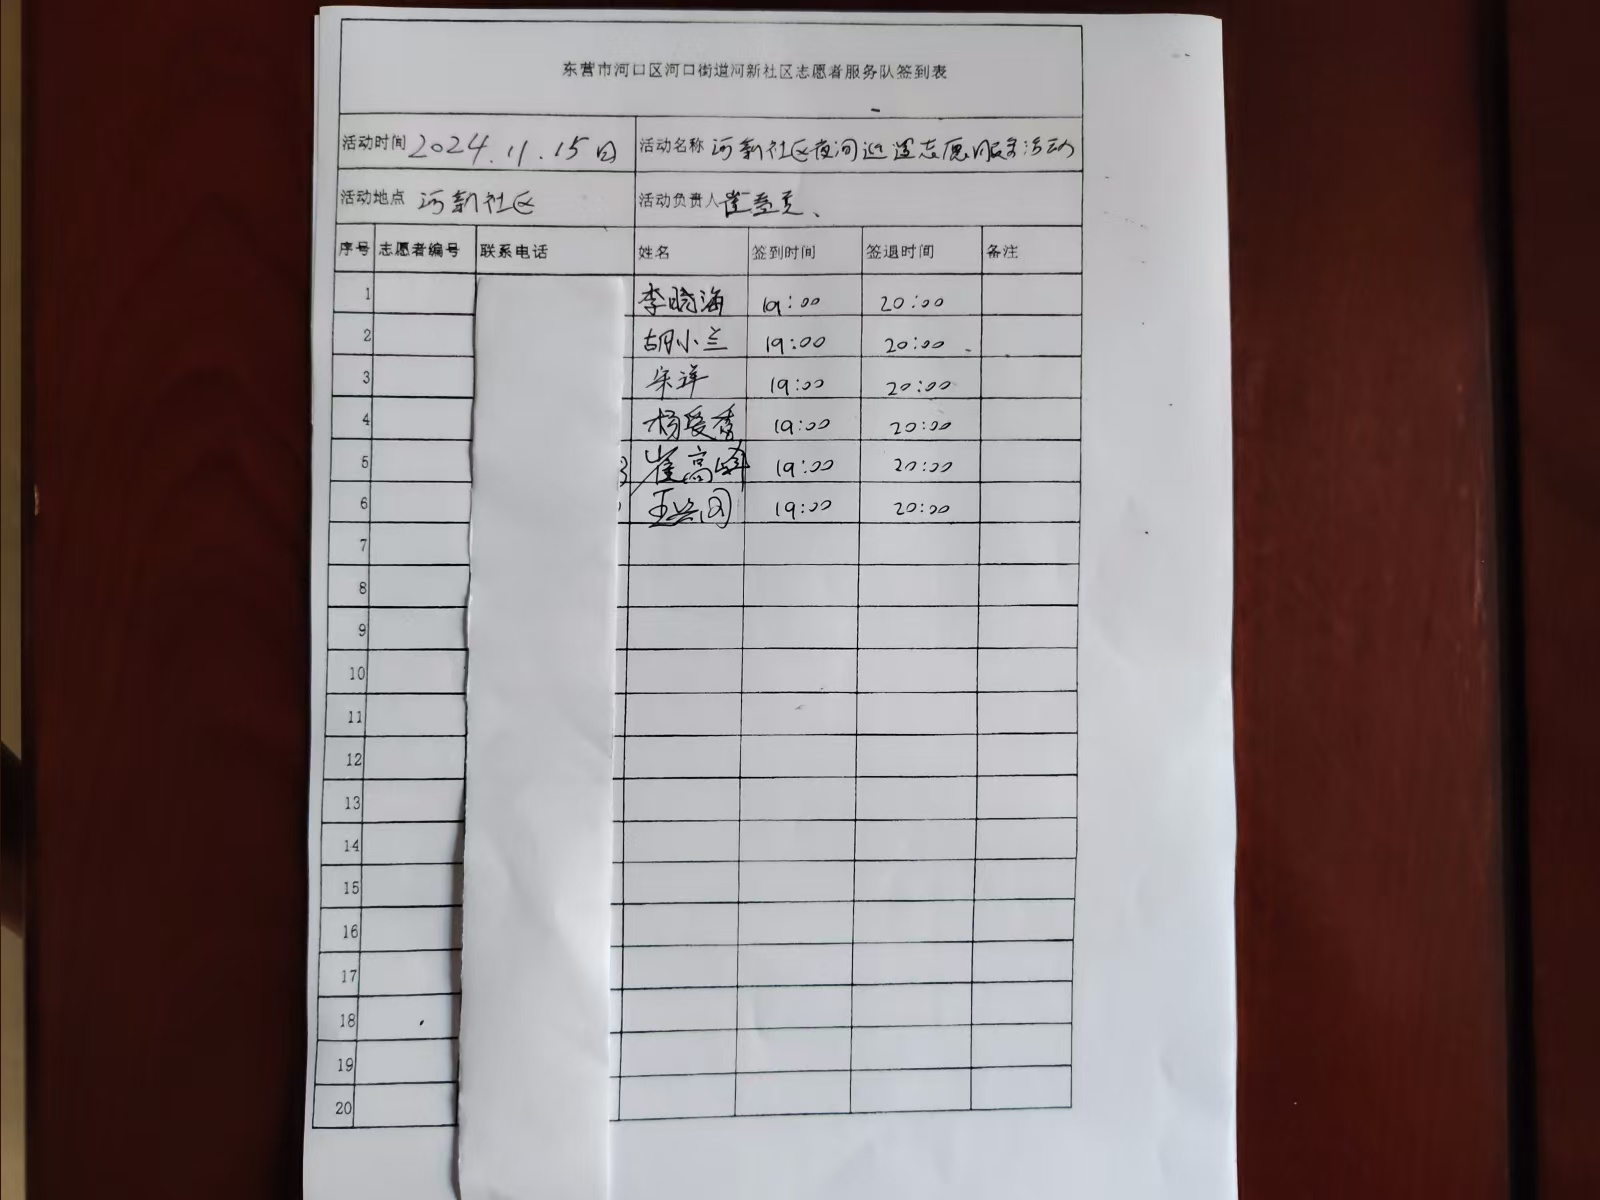 东营市河口区河口街道河新社区志愿者服务队签到表
活动时间 2024.11.15日 活动名称 河新社区夜间巡逻志愿服务活动
活动地点 河新社区 活动负责人 崔
序号 志愿者编号 联系电话 姓名 签到时间 签退时间 备注
1 李晓海 19:00 20:00
2 胡小兰 19:00 20:00
3 宋洋 19:00 20:00
4 杨爱香 19:00 20:00
5 崔高峰 19:00 20:00
6 王兴国 19:00 20:00
7
8
9
10
11
12
13
14
15
16
17
18
19
20